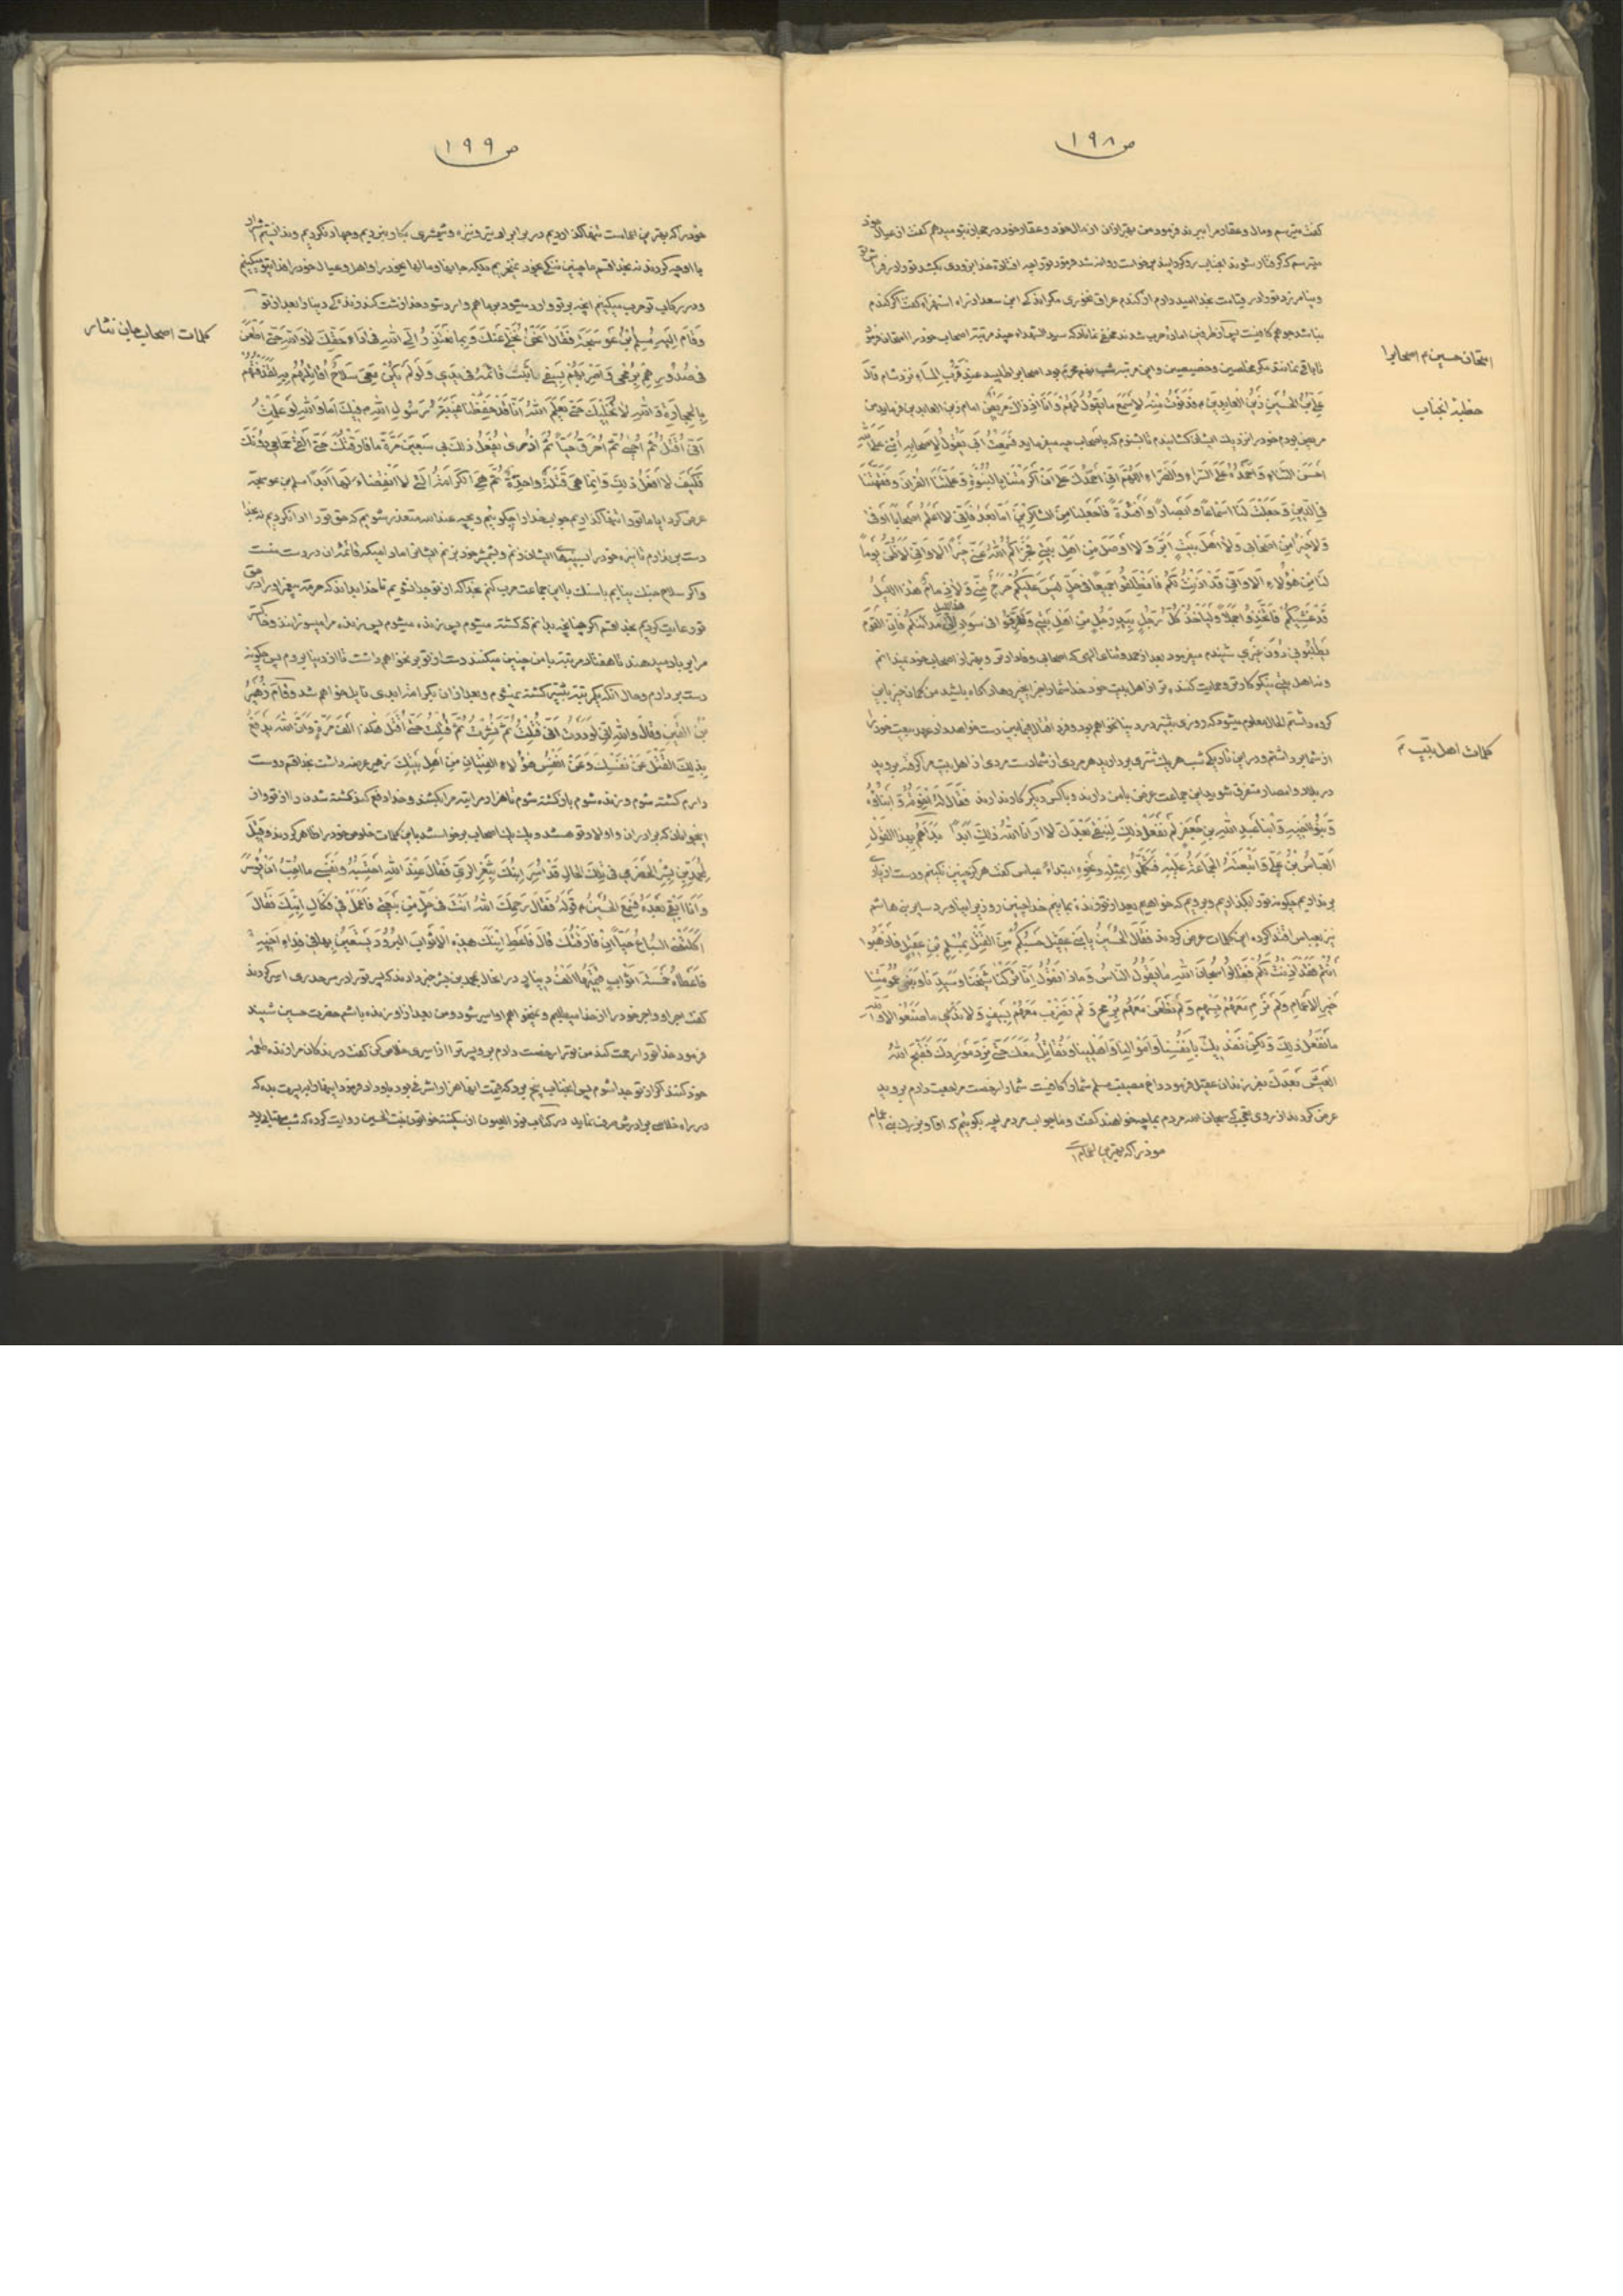 ص ١٩٨
گفت میترسم ومال وعقار مرا ببرند فرمود من بهتر از ان از مال خود وعقار خود در حجاز بتو میدهم گفت از عیال خود
میترسم که گرفتار شوند انجناب رو گردانید برخواست روانه شد فرمود تو را چه افتاد خدا بزودی بکشد تو را در فراش تو
ونیامرزد تو را در قیامت بخدا امید دارم از گندم عراق نخوری مگر اندکی ابن سعد از راه استهزاء گفت اگر گندم
نباشد جو هم کافیست
امتحان حسین م اصحابرا
علی بن الحسین زین العابدین م فدنوت منه لاسمع ما یقول لهم وانا اذ ذاک مریض امام زین العابدین فرمایند من
خطبه انجناب
مریض بودم خود را نزدیک ایشان کشانیدم تا بشنوم که باصحاب چه میفرماید فسمعت ابی یقول لاصحابه اثنی علی الله
احسن الثناء واحمده علی السراء والضراء اللهم انی احمدک علی ان اکرمتنا بالنبوة وعلمتنا القران وفقهتنا
فی الدین وجعلت لنا اسماعا وابصارا وافئدة فاجعلنا من الشاکرین اما بعد فانی لا اعلم اصحابا اوفی
ولا خیرا من اصحابی ولا اهل بیت ابر ولا اوصل من اهل بیتی فجزاکم الله عنی خیرا الا وانی لاظن یوما
لنا من هؤلاء الا وانی قد اذنت لکم فانطلقوا جمیعا فی حل لیس علیکم حرج منی ولا ذمام هذا اللیل
قد غشیکم فاتخذوه جملا ولیاخذ کل رجل بید رجل من اهل بیتی وتفرقوا فی سواد هذا اللیل فان القوم
یطلبونی دون غیری شنیدم میفرمود بعد از حمد وثنای الهی که اصحابی وفادار تر وبهتر از اصحاب خود نمیدانم
ونه اهل بیتی نیکو کار تر
کلمات اهل بیت م
از شما برداشتم ودر این تاریکی شب هر یک شتری بردارید هر مردی از شما دست مردی از اهل بیت مرا گرفته بروید
در بلاد وامصار متفرق شوید این جماعت غرض با من دارند وبا کس دیگر کار ندارند فقال له اخوته وابناؤه
وبنو اخیه وابنا عبد الله بن جعفر لم نفعل ذلک لنبقی بعدک لا ارانا الله ذلک ابدا بداهم بهذا القول
العباس بن علی واتبعته الجماعة علیه فتکلموا بمثله ونحوه ابتداء عباس گفت هرگز چنین نکنیم ودست از یاری
بر نداریم چگونه تو را بگذاریم وبرویم که خواهیم بعد از تو زنده بمانیم خدا چنین روز بر ما نیاورد سایر بنی هاشم
نیز بعباس اقتدا کرده این کلمات عرض کردند فقال الحسین یا بنی عقیل حسبکم من القتل بمسلم بن عقیل فاذهبوا
انتم فقد اذنت لکم فقالوا سبحان الله ما یقول الناس وماذا نقول انا ترکنا شیخنا وسیدنا وبنی عمومتنا
خیر الاعمام ولم نرم معهم بسهم ولم نطعن معهم برمح ولم نضرب معهم بسیف ولا ندری ما صنعوا لا والله
ما نفعل ذلک ولکن نفدیک بانفسنا واموالنا واهلینا ونقاتل معک حتی نرد موردک فقبح الله
العیش بعدک بفرزندان عقیل فرمود داغ مصیبت مسلم شما را کافیست شما را رخصت مراجعت دادم بروید
عرض کردند از روی تعجب که سبحان الله مردم بما چه خواهند گفت وما جواب مردم را چه بگوئیم که اقا وبزرگ بنی اعمام
خود را که بهترین اعمام
ص ١٩٩
خود را که بهترین اعمامست تنها گذاردیم در برابر او تیر ونیزه وشمشیری بکار نبردیم وجهاد نکردیم وندانستیم
با او چه کردند نه بخدا قسم ما چنین
ودر رکاب تو حرب میکنیم انچه بر تو وارد میشود بر ما هم وارد شود خدا زشت کند زندگی دنیا را بعد از تو
کلمات اصحاب جان نثار
وقام الیه مسلم بن عوسجة فقال انحن نخلی عنک وبما نعتذر الی الله فی اداء حقک لا والله حتی اطعن
فی صدورهم برمحی واضربهم بسیفی ما ثبت قائمه فی یدی ولو لم یکن معی سلاح اقاتلهم به لقذفتهم
بالحجارة والله لا نخلیک حتی یعلم الله انا قد حفظنا غیبة رسول الله م فیک اما والله لو علمت
انی اقتل ثم احیی ثم احرق حیا ثم اذری یفعل ذلک بی سبعین مرة ما فارقتک حتی القی حمامی دونک
فکیف لا افعل ذلک وانما هی قتلة واحدة ثم هی الکرامة التی لا انقضاء لها ابدا مسلم بن عوسجه
عرض کرد ایا ما تو را تنها گذاریم جواب خدا را چگوئیم وبچه عند الله متعذر شویم که حق تو را ادا نکردیم نه بخدا
دست بر ندارم تا نیزه خود را بسینهای ایشان زنم وبشمشیر خود بزنم ایشانرا مادامیکه قائمه ان در دست منست
واگر سلاح جنگ نیابم با سنگ با این جماعت حرب کنم بخدا که از تو جدا نشویم تا خدا بداند که حرمت پیغمبر او را در حق
تو رعایت کردیم بخدا قسم اگر چنانچه بدانم که کشته میشوم پس زنده میشوم پس زنده مرا میسوزانند وخاکستر
مرا بر باد میدهند تا هفتاد مرتبه با من چنین میکنند دست از تو بر نخواهم داشت تا از دنیا بروم پس چگونه
دست بر دارم وحال انکه یکمرتبه بیشتر کشته نمیشوم وبعد از ان بکرامت ابدی نایل خواهم شد وقام زهیر
بن القین وقال والله انی لوددت انی قتلت ثم نشرت ثم قتلت حتی اقتل هکذا الف مرة وان الله یدفع
بذلک القتل عن نفسک وعن انفس هؤلاء الفتیان من اهل بیتک زهیر عرضه داشت بخدا قسم دوست
دارم کشته شوم وزنده شوم باز کشته شوم تا هزار مرتبه مرا بکشند وخدا دفع کند کشته شدن را از تو واز
این جوانان که برادران واولاد تو هستند
لمحمد بن بشر الحضرمی فی تلک الحال قد اسر ابنک بثغر الری فقال عند الله احتسبه ونفسی ما احب ان یؤسر
وانا ابقی بعده فسمع الحسین م قوله فقال رحمک الله انت فی حل من بیعتی فاعمل فی فکاک ابنک فقال
اکلتنی السباع حیا ان فارقتک قال فاعط ابنک هذه الاثواب البرود یستعین بها فی فداء اخیه
فاعطاه خمسة اثواب قیمتها الف دینار در انحال بمحمد بن بشر خبر دادند که پسر تو را در سرحد ری اسیر کردند
گفت اجر او واجر خود را از خدا میطلبم ونمیخواهم او اسیر شود ومن بعد از او زنده باشم حضرت حسین شنید
فرمود خدا تو را رحمت کند من تو را رخصت دادم برو پسرت را از اسیری خلاص کن گفت درندگان مرا زنده طعمه
خود کنند اگر از تو جدا شوم پس انجناب پنج برد که قیمت انها هزار اشرفی بود باو داد فرمود اینها را به پسرت بده که
در راه خلاصی برادرش صرف نماید در کتاب نور العیون از سکینه خواتون بنت الحسین روایت کرده که